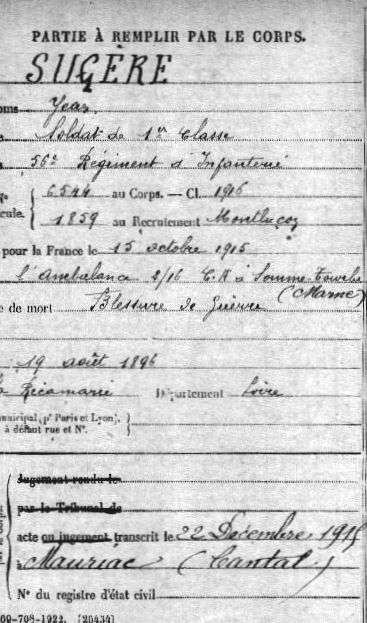 PARTIE À REMPLIR PAR LE CORPS.
SUGÈRE
oms Jean
Soldat de 1re Classe
56e Régiment d'Infanterie
No 6544 au Corps. — Cl. 1916
cule. 1859 au Recrutement Montluçon
pour la France le 15 octobre 1915
l'Ambulance 2/16 C.A à Somme-Tourbe
(Marne)
e de mort Blessure de Guerre
19 août 1896
la Ricamarie Département Loire
municipal (pr Paris et Lyon),
à défaut rue et No.
Jugement rendu le
par le Tribunal de
acte ou jugement transcrit le 22 Décembre 1915
à Mauriac (Cantal)
No du registre d'état civil
69-708-1922. [26434]